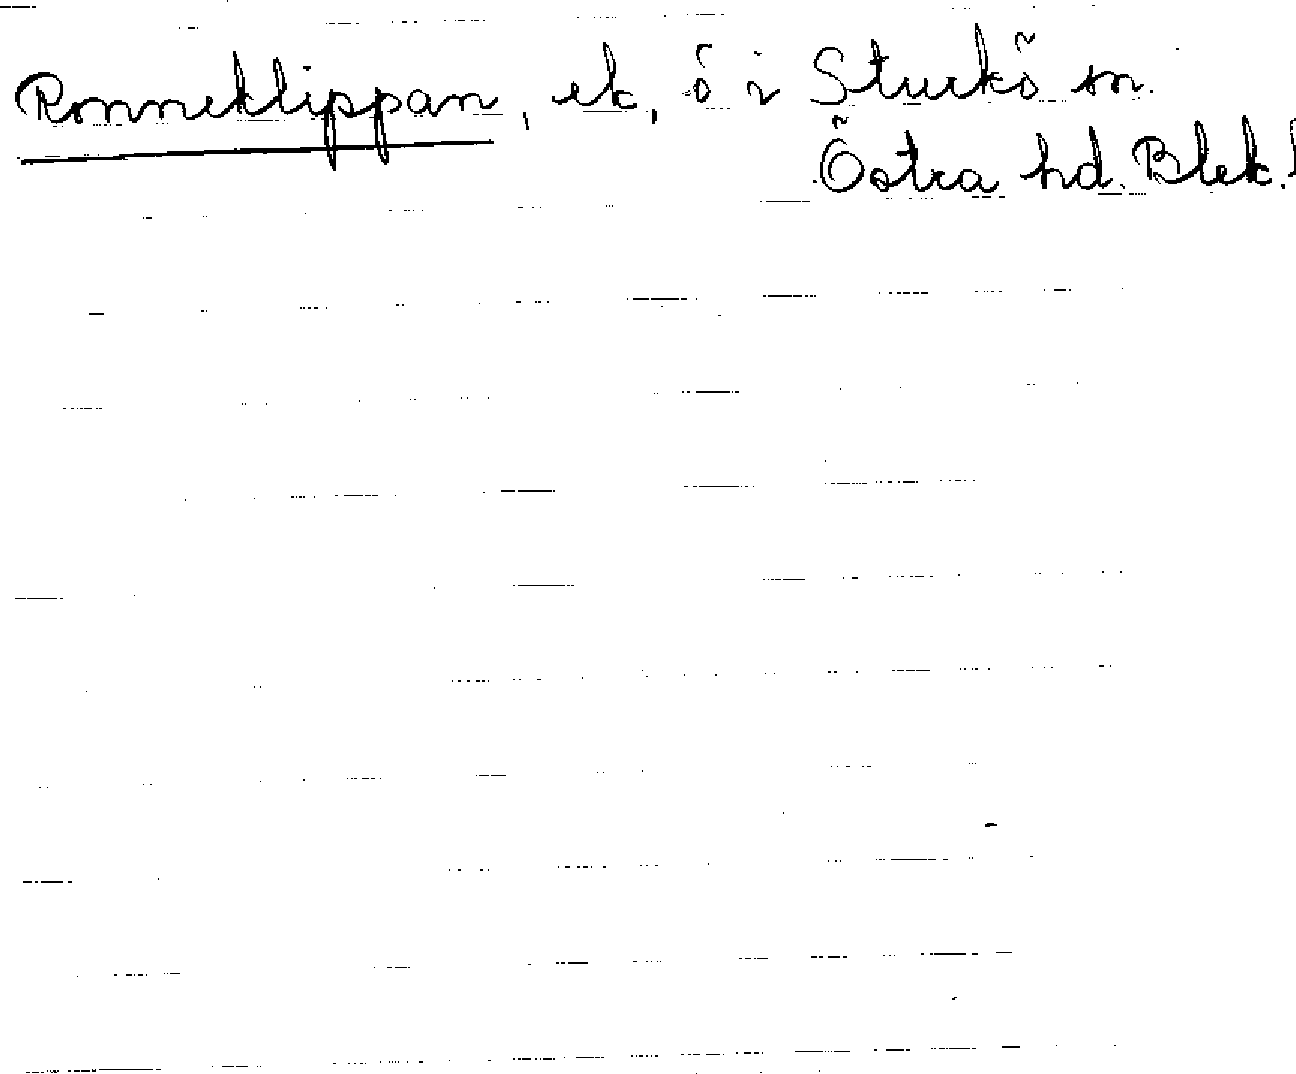 Ronneklippan, ek, ö i Sturkö sn.
Östra hd. Blek.l